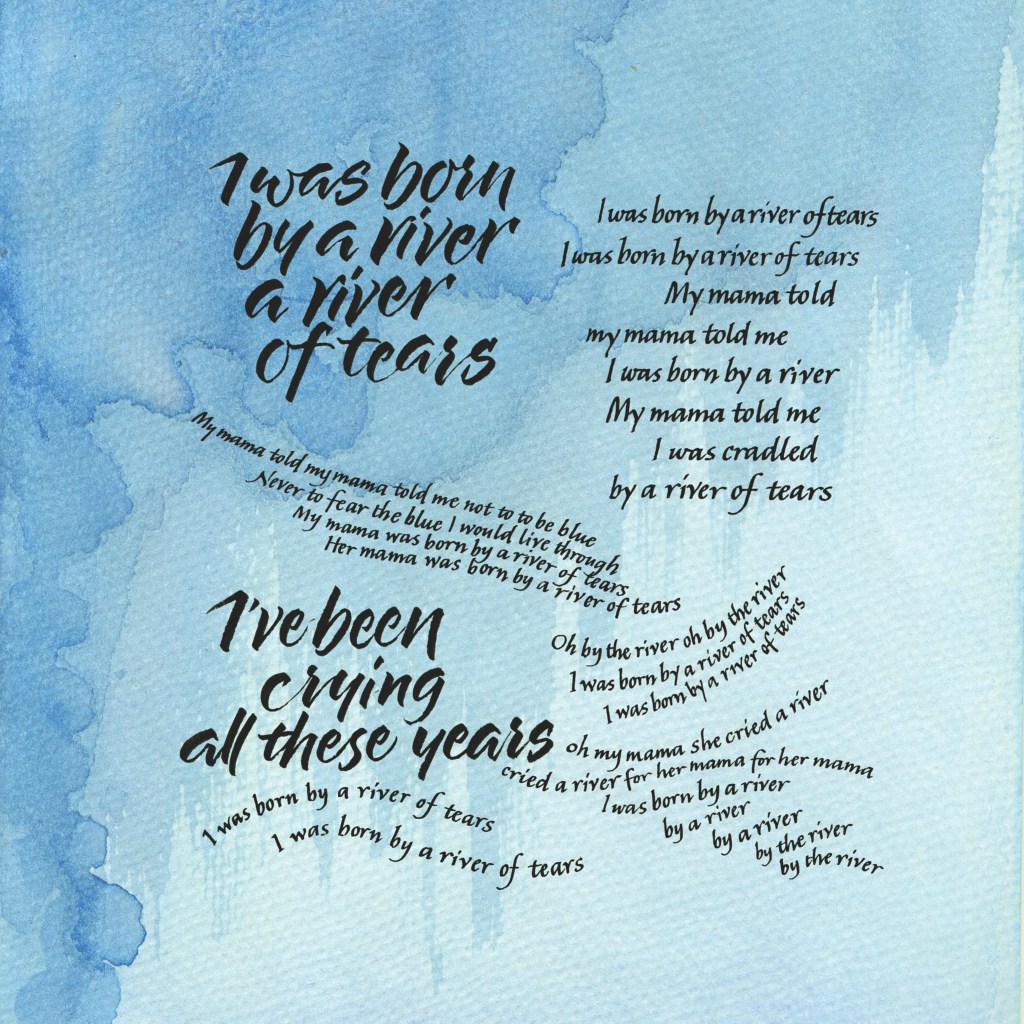 I was born
by a river
a river
of tears
My mama told my mama told me not to to be blue
Never to fear the blue I would live through
My mama was born by a river of tears
Her mama was born by a river of tears
I've been
crying
all these years
I was born by a river of tears
I was born by a river of tears
I was born by a river of tears
I was born by a river of tears
My mama told
my mama told me
I was born by a river
My mama told me
I was cradled
by a river of tears
Oh by the river oh by the river
I was born by a river of tears
I was born by a river of tears
Oh my mama she cried a river
cried a river for her mama for her mama
I was born by a river
by a river
by a river
by the river
by the river